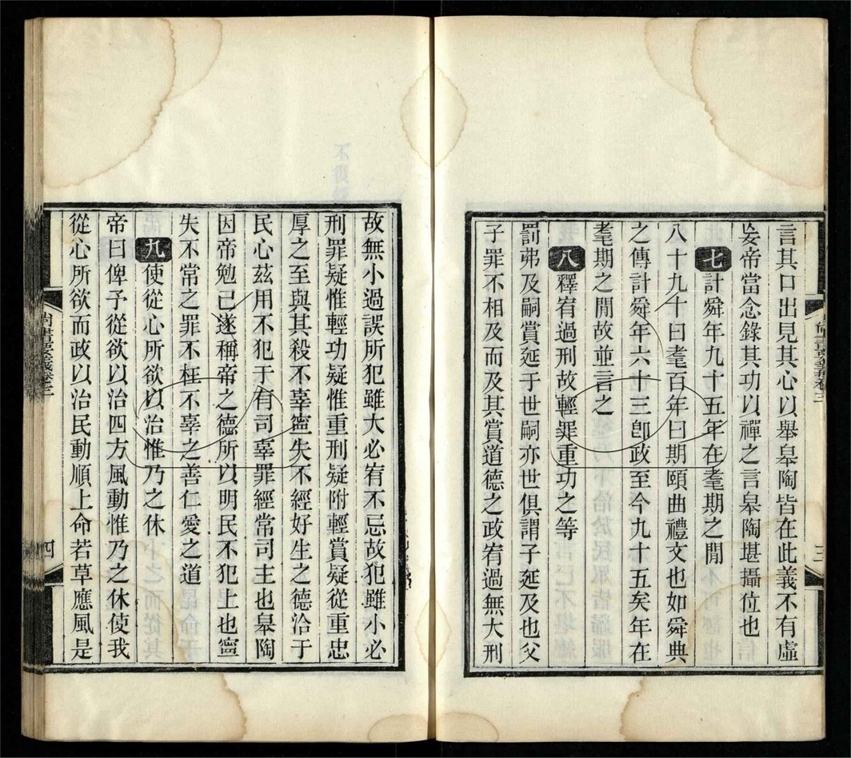 言其口出見其心以舉皋陶皆在此義不有虛
妄帝當念錄其功以禪之言皋陶堪攝位也
七計舜年九十五年在耄期之閒
八十九十曰耄百年曰期頤曲禮文也如舜典
之傳計舜年六十三卽政至今九十五矣年在
耄期之閒故並言之
八釋宥過刑故輕罪重功之等
罰弗及嗣賞延于世嗣亦世俱謂子延及也父
子罪不相及而及其賞道德之政宥過無大刑
三
故無小過誤所犯雖大必宥不忌故犯雖小必
刑罪疑惟輕功疑惟重刑疑附輕賞疑從重忠
厚之至與其殺不辜寍失不經好生之德洽于
民心茲用不犯于有司辜罪經常司主也皋陶
因帝勉己遂稱帝之德所以明民不犯上也寍
失不常之罪不枉不辜之善仁愛之道
九使從心所欲以治惟乃之休
帝曰俾予從欲以治四方風動惟乃之休使我
從心所欲而政以治民動順上命若草應風是
尚書要義卷三
四